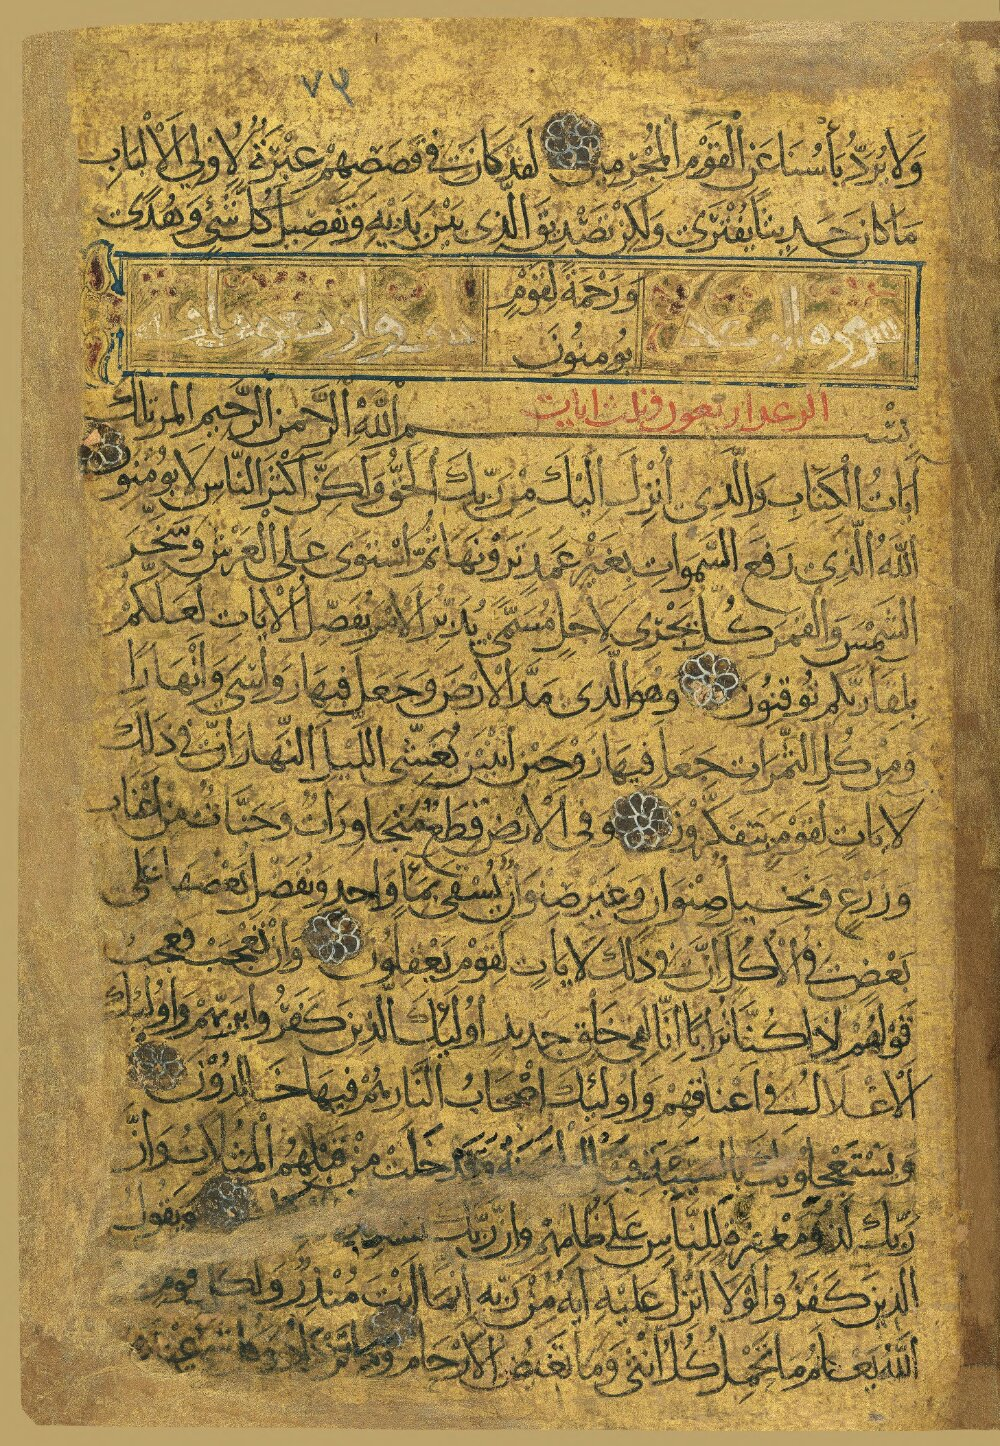 ٧٣
وَلَا يُرَدُّ بَأْسُنَا عَنِ الْقَوْمِ الْمُجْرِمِينَ لَقَدْ كَانَ فِي قَصَصِهِمْ عِبْرَةٌ لِأُولِي الْأَلْبَابِ
مَا كَانَ حَدِيثًا يُفْتَرَى وَلَكِنْ تَصْدِيقَ الَّذِي بَيْنَ يَدَيْهِ وَتَفْصِيلَ كُلِّ شَيْءٍ وَهُدًى
وَرَحْمَةً لِقَوْمٍ
يُومِنُونَ
سورة الرعد
الرعد اربعون وثلث ايات
بِسْمِ اللَّهِ الرَّحْمَنِ الرَّحِيمِ المر تِلْكَ
آيَاتُ الْكِتَابِ وَالَّذِي أُنْزِلَ إِلَيْكَ مِنْ رَبِّكَ الْحَقُّ وَلَكِنَّ أَكْثَرَ النَّاسِ لَا يُومِنُونَ
اللَّهُ الَّذِي رَفَعَ السَّمَوَاتِ بِغَيْرِ عَمَدٍ تَرَوْنَهَا ثُمَّ اسْتَوَى عَلَى الْعَرْشِ وَسَخَّرَ
الشَّمْسَ وَالْقَمَرَ كُلٌّ يَجْرِي لِأَجَلٍ مُسَمًّى يُدَبِّرُ الْأَمْرَ يُفَصِّلُ الْآيَاتِ لَعَلَّكُمْ
بِلِقَاءِ رَبِّكُمْ تُوقِنُونَ وَهُوَ الَّذِي مَدَّ الْأَرْضَ وَجَعَلَ فِيهَا رَوَاسِيَ وَأَنْهَارًا
وَمِنْ كُلِّ الثَّمَرَاتِ جَعَلَ فِيهَا زَوْجَيْنِ اثْنَيْنِ يُغْشِي اللَّيْلَ النَّهَارَ إِنَّ فِي ذَلِكَ
لَآيَاتٍ لِقَوْمٍ يَتَفَكَّرُونَ وَفِي الْأَرْضِ قِطَعٌ مُتَجَاوِرَاتٌ وَجَنَّاتٌ مِنْ أَعْنَابٍ
وَزَرْعٍ وَنَخِيلٍ صِنْوَانٍ وَغَيْرِ صِنْوَانٍ يُسْقَى بِمَاءٍ وَاحِدٍ وَنُفَضِّلُ بَعْضَهَا عَلَى
بَعْضٍ فِي الْأُكُلِ إِنَّ فِي ذَلِكَ لَآيَاتٍ لِقَوْمٍ يَعْقِلُونَ وَإِنْ تَعْجَبْ فَعَجَبٌ
قَوْلُهُمْ أَإِذَا كُنَّا تُرَابًا إِنَّا لَفِي خَلْقٍ جَدِيدٍ أُولَئِكَ الَّذِينَ كَفَرُوا بِرَبِّهِمْ وَأُولَئِكَ
الْأَغْلَالُ فِي أَعْنَاقِهِمْ وَأُولَئِكَ أَصْحَابُ النَّارِ هُمْ فِيهَا خَالِدُونَ
وَيَسْتَعْجِلُونَكَ بِالسَّيِّئَةِ قَبْلَ الْحَسَنَةِ وَقَدْ خَلَتْ مِنْ قَبْلِهِمُ الْمَثُلَاتُ وَإِنَّ
رَبَّكَ لَذُو مَغْفِرَةٍ لِلنَّاسِ عَلَى ظُلْمِهِمْ وَإِنَّ رَبَّكَ لَشَدِيدُ وَيَقُولُ
الَّذِينَ كَفَرُوا لَوْلَا أُنْزِلَ عَلَيْهِ آيَةٌ مِنْ رَبِّهِ إِنَّمَا أَنْتَ مُنْذِرٌ وَلِكُلِّ قَوْمٍ
اللَّهُ يَعْلَمُ مَا تَحْمِلُ كُلُّ أُنْثَى وَمَا تَغِيضُ الْأَرْحَامُ وَمَا تَزْدَادُ